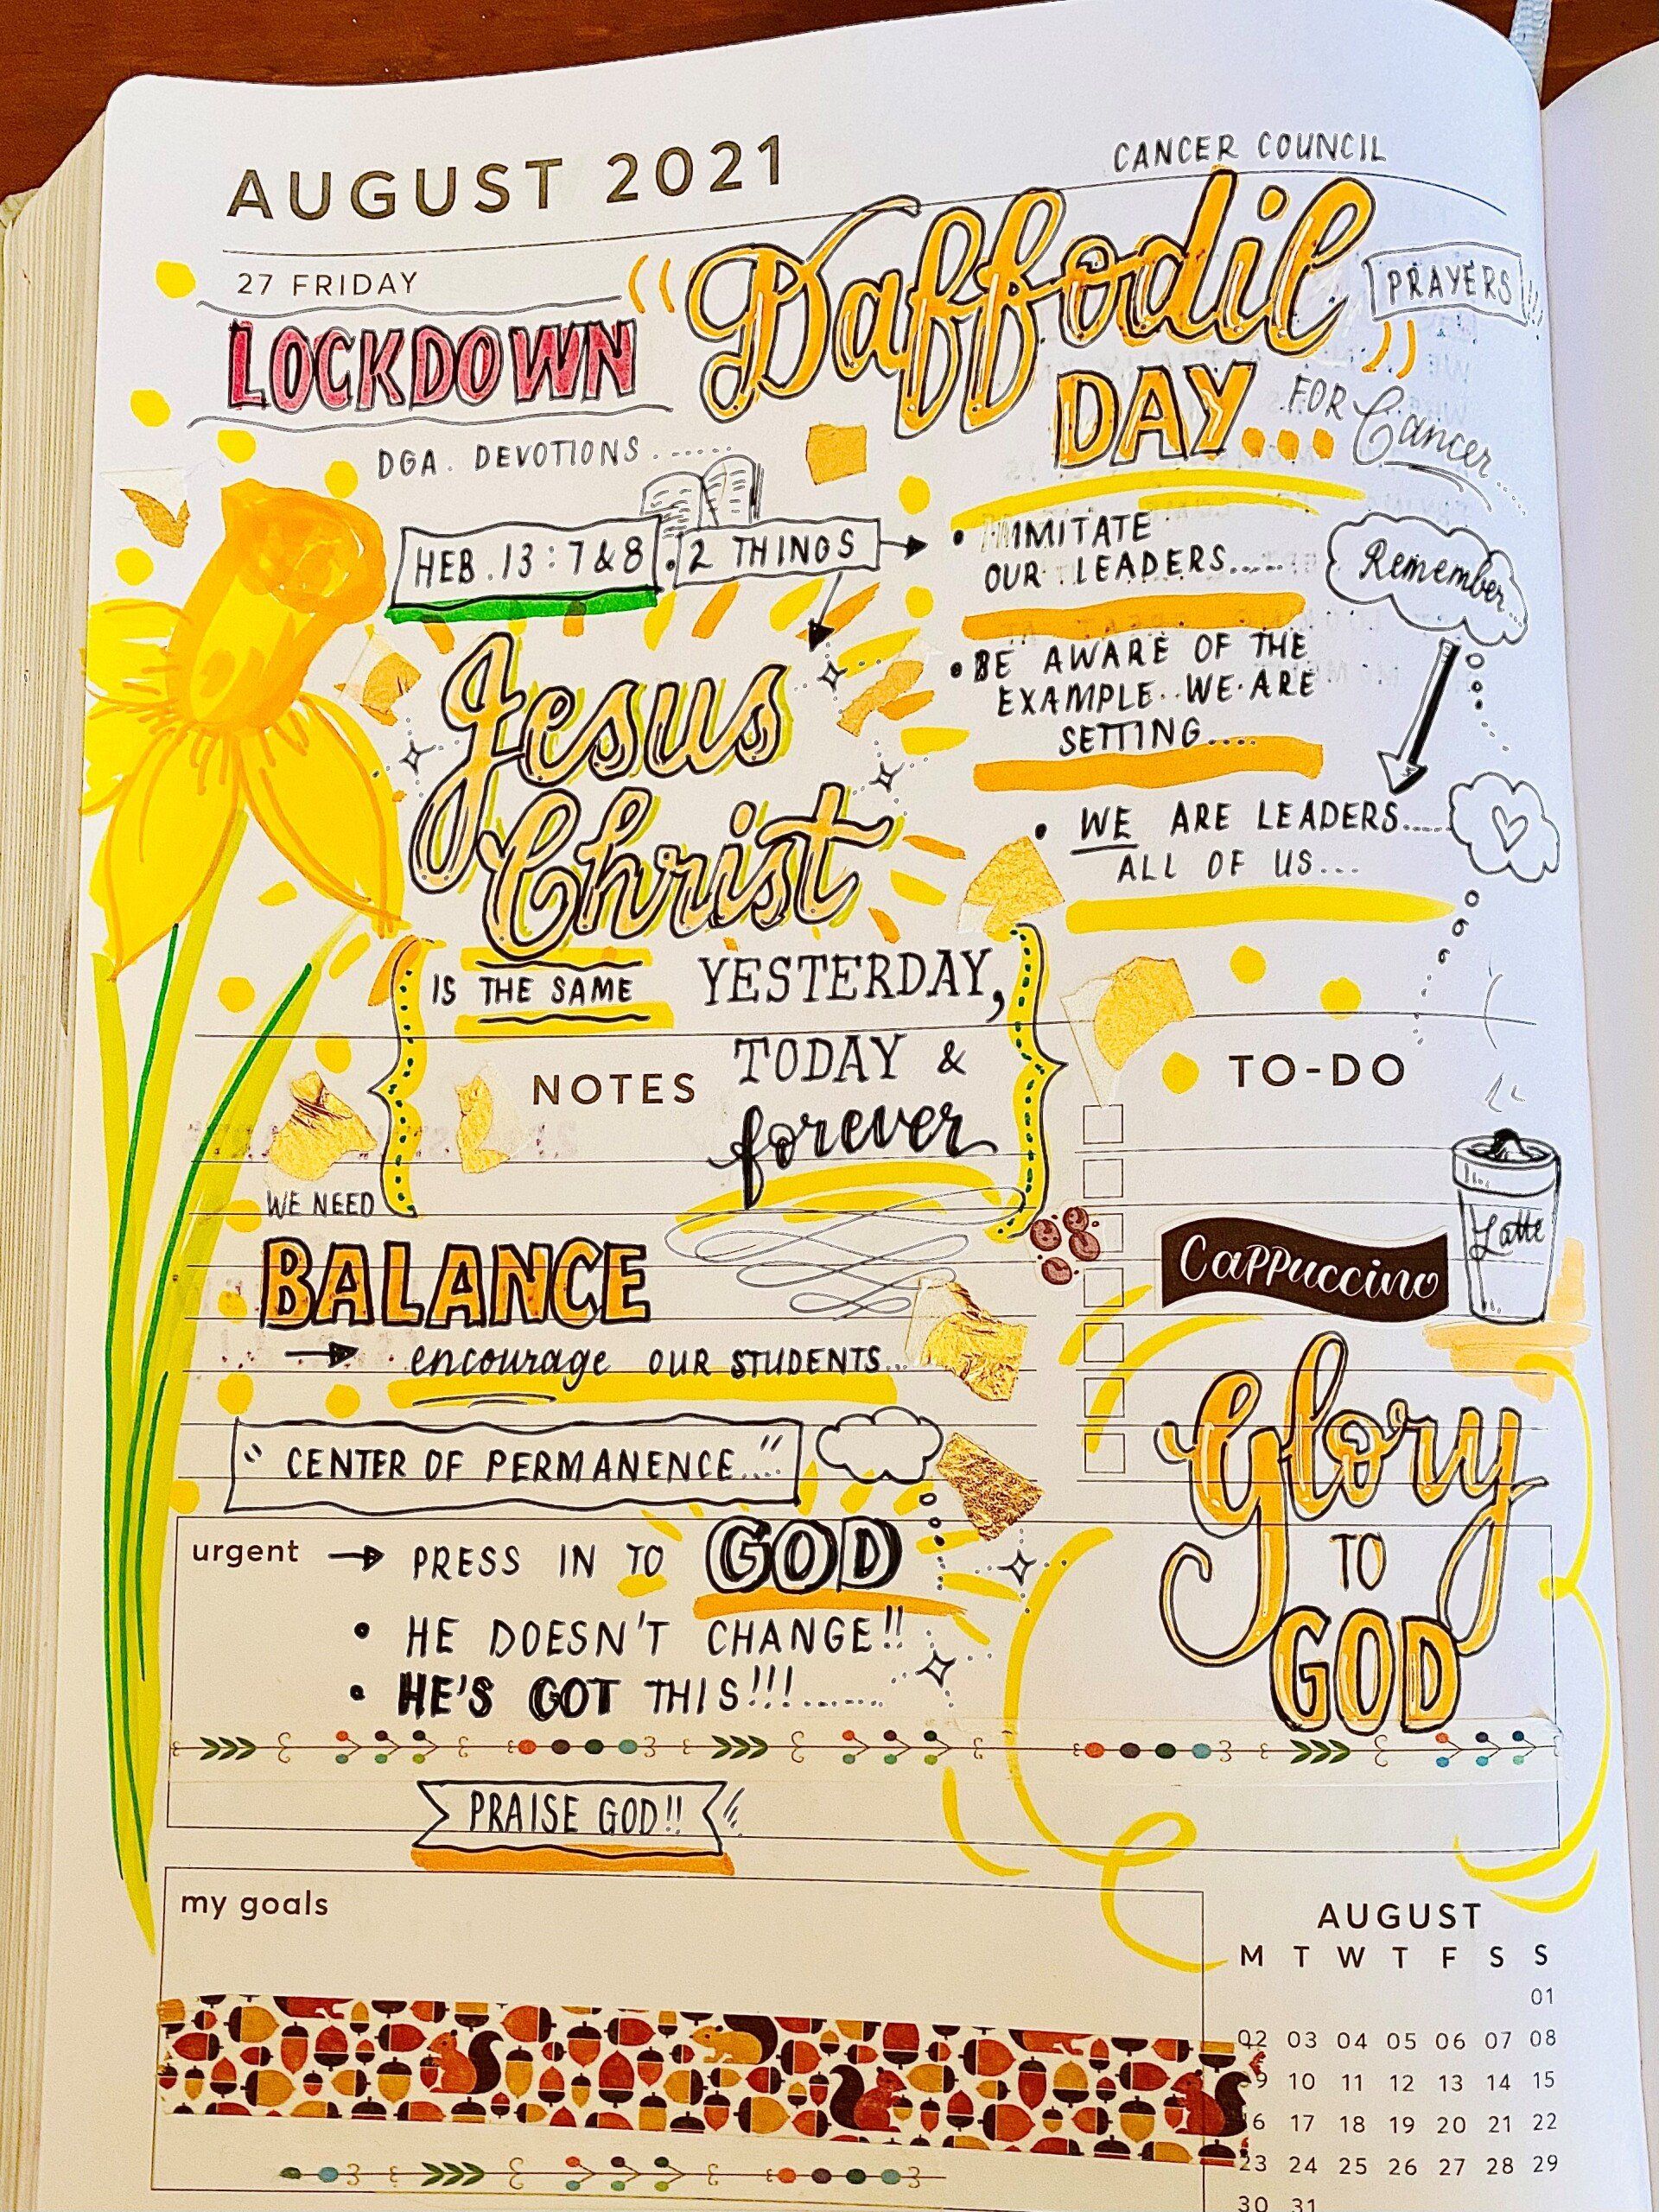 AUGUST 2021
CANCER COUNCIL
27 FRIDAY
LOCKDOWN
"Daffodil"
PRAYERS!!!
DAY... FOR Cancer....
DGA. DEVOTIONS......
HEB. 13:7&8. 2 THINGS
• IMMITATE
OUR LEADERS.....
Remember...
• BE AWARE OF THE
EXAMPLE..WE.ARE
SETTING....
• WE ARE LEADERS.....
ALL OF US...
Jesus
Christ
IS THE SAME YESTERDAY,
TODAY &
forever
NOTES
TO-DO
WE NEED
BALANCE
encourage OUR STUDENTS...
Latte
Cappuccino
"CENTER OF PERMANENCE...."
Glory
TO
GOD
urgent
PRESS IN TO GOD
• HE DOESN'T CHANGE!!
• HE'S GOT THIS!!!.......
PRAISE GOD!!
my goals
AUGUST
M T W T F S S
01
02 03 04 05 06 07 08
9 10 11 12 13 14 15
16 17 18 19 20 21 22
23 24 25 26 27 28 29
30 31